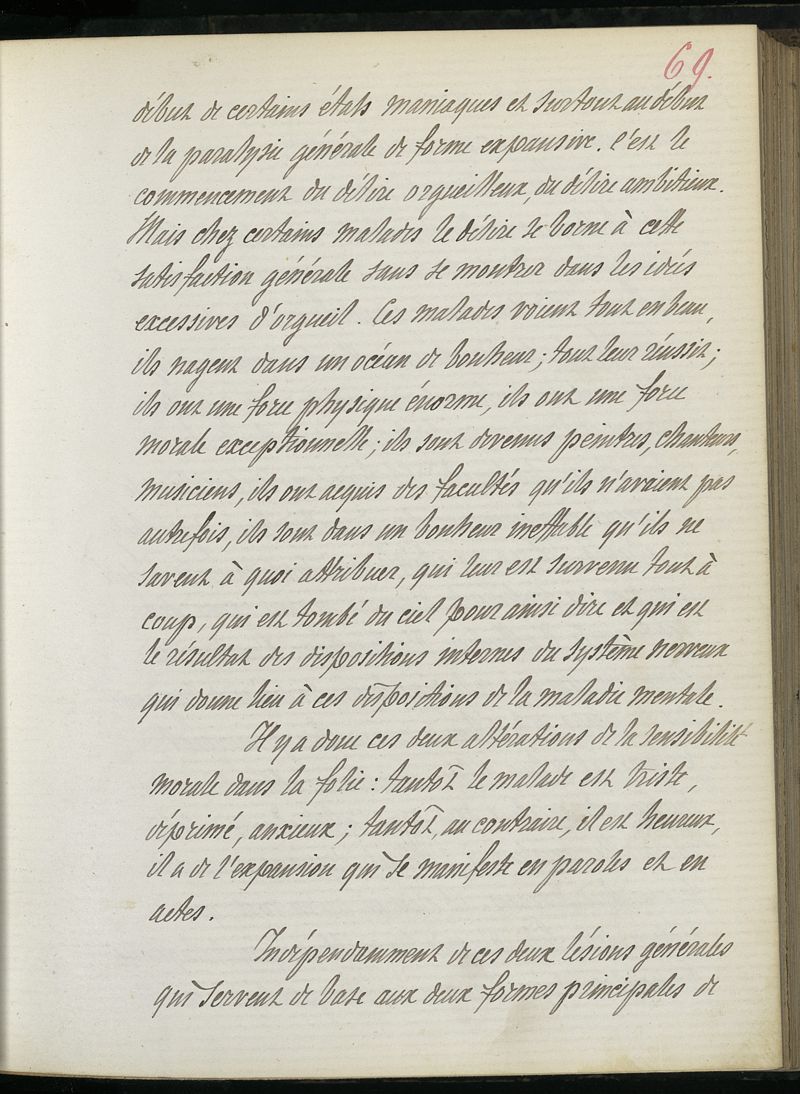 69.
début de certains états maniaques et surtout au début
de la paralysie générale de forme expansive. C'est le
commencement du délire orgueilleux, du délire ambitieux.
Mais chez certains malades le délire se borne à cette
satisfaction générale sans se montrer dans les idées
excessives d'orgueil. Ces malades voient tout en beau,
ils nagent dans un océan de bonheur ; tout leur réussit ;
ils ont une force physique énorme, ils ont une force
morale exceptionnelle ; ils sont devenus peintres, chanteurs,
musiciens, ils ont acquis des facultés qu'ils n'avaient pas
autrefois, ils sont dans un bonheur ineffable qu'ils ne
savent à quoi attribuer, qui leur est survenu tout à
coup, qui est tombé du ciel pour ainsi dire et qui est
le résultat des dispositions internes du système nerveux
qui donne lieu à ces dispositions de la maladie mentale.
Il y a donc ces deux altérations de la sensibilité
morale dans la folie : tantôt le malade est triste,
déprimé, anxieux ; tantôt, au contraire, il est heureux,
il a de l'expansion qui se manifeste en paroles et en
actes.
Indépendamment de ces deux lésions générales
qui servent de base aux deux formes principales de